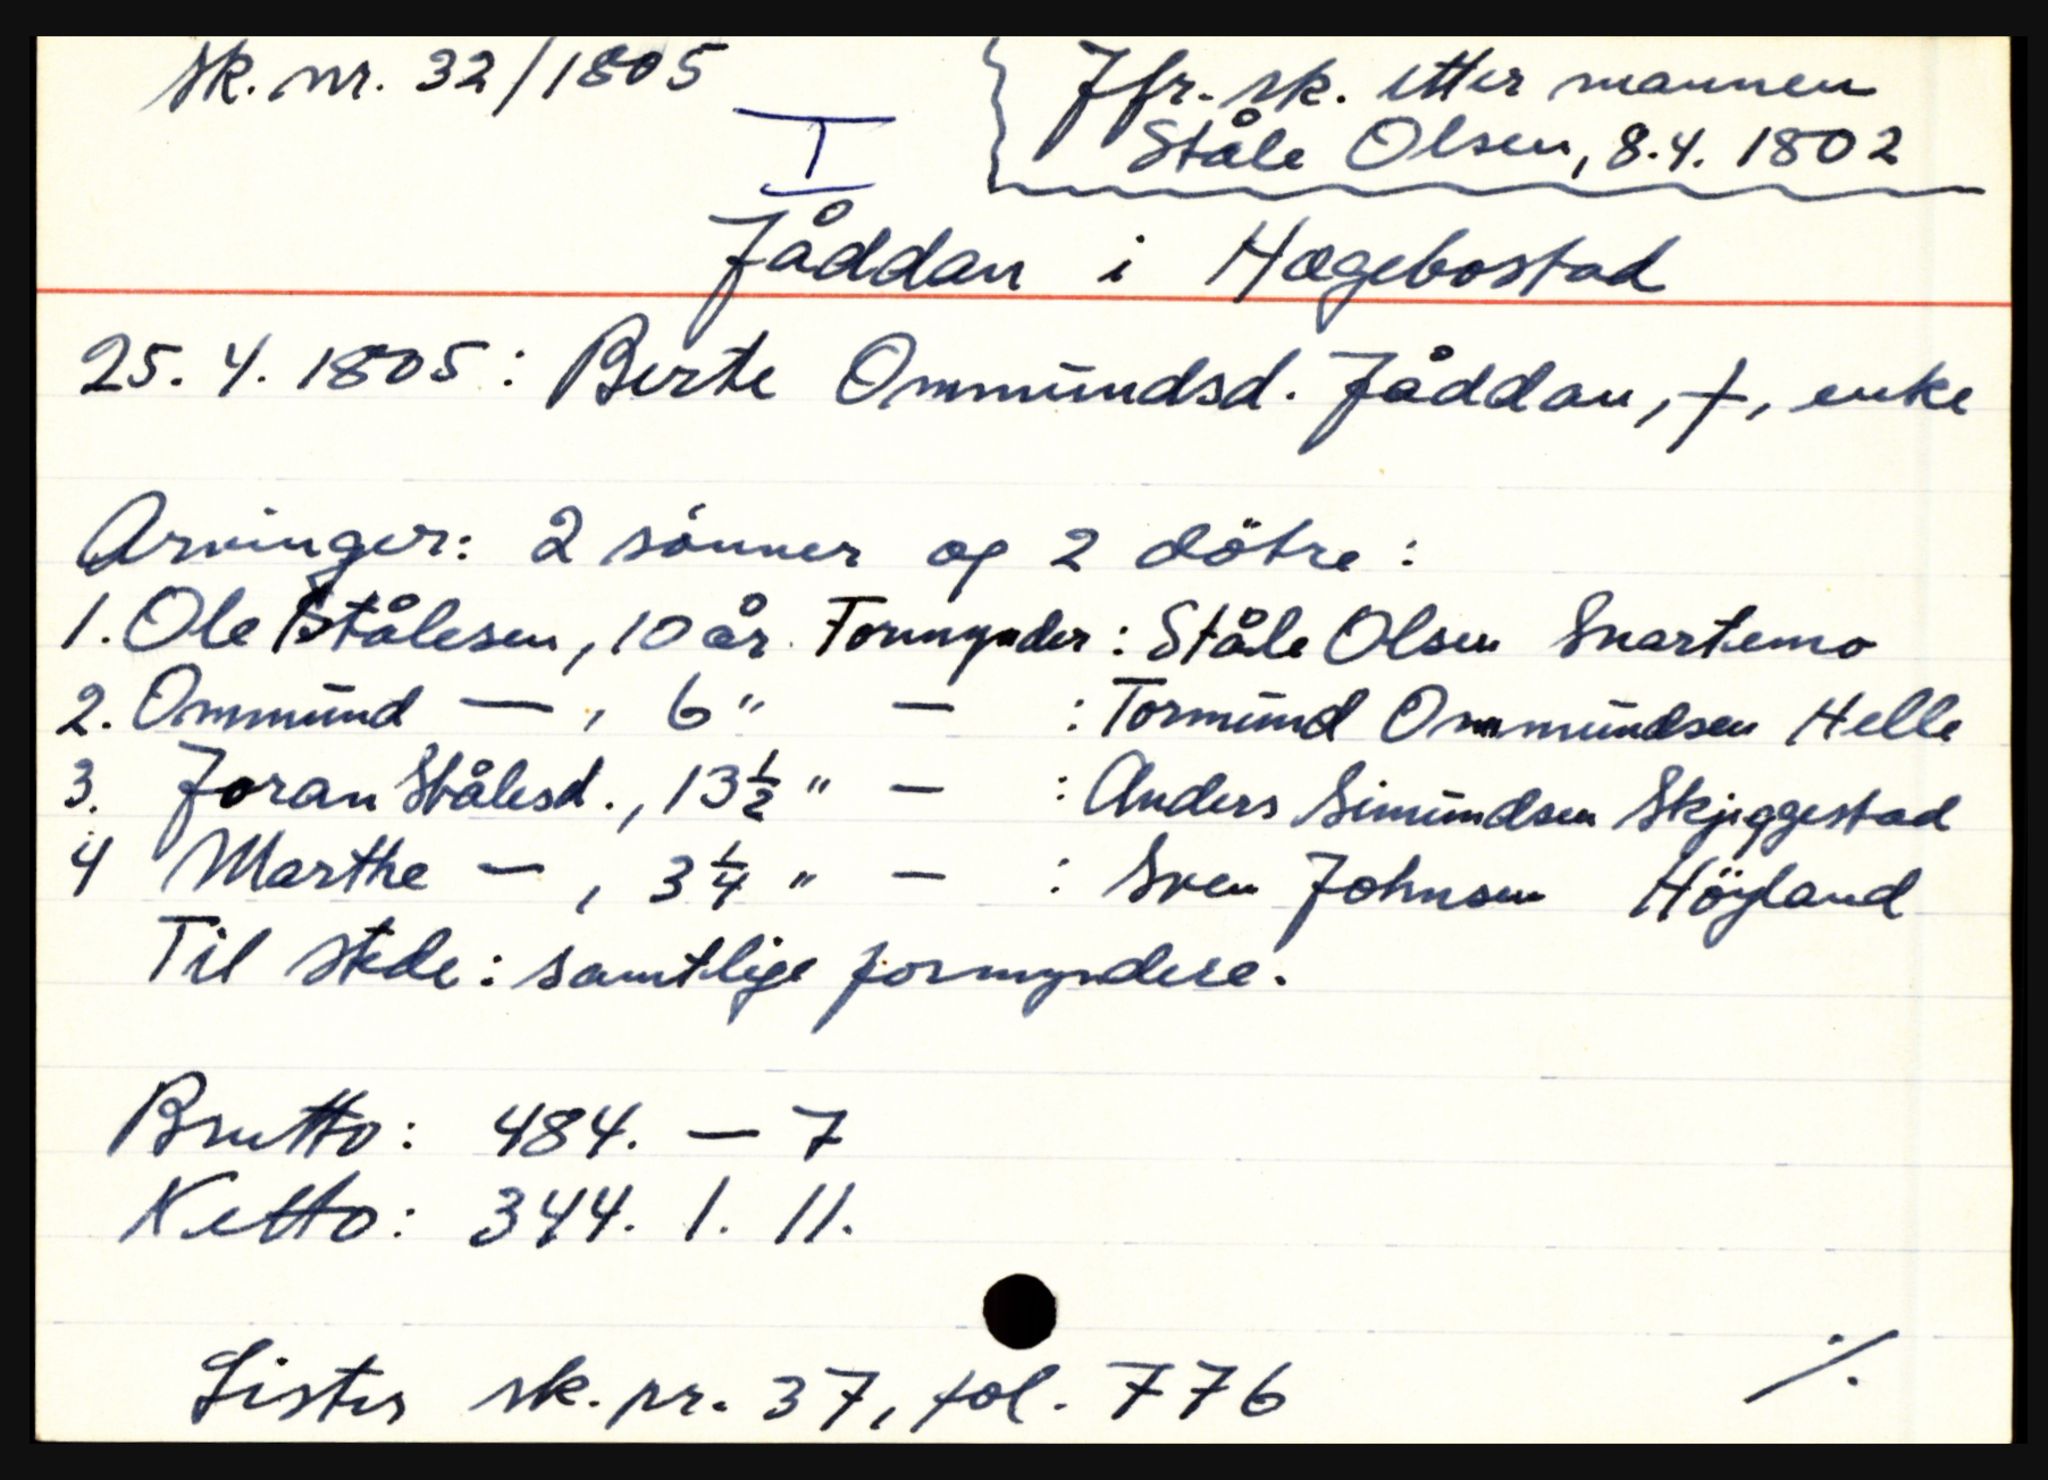 sk. nr. 32/1805
I
Jfr. sk. etter mannen
Ståle Olsen, 8.4. 1802
Jåddan i Hægebostad
25. 4. 1805: Berte Ommundsd. Jåddan, †, enke
Arvinger: 2 sönner og 2 dötre:
1. Ole Stålesen, 10 år. Formynder: Ståle Olsen Snartemo
2. Ommund — , 6 " — : Tormund Ommundsen Helle
3. Joran Stålesd., 13 1/2 " — : Anders Simundsen Skjeggestad
4 Marthe — , 3 1/4 " — : Sven Johnsen Höyland
Til stede: samtlige formyndere.
Brutto: 484. — 7
Netto: 344. 1. 11.
Lister sk. pr. 37, fol. 776
./.